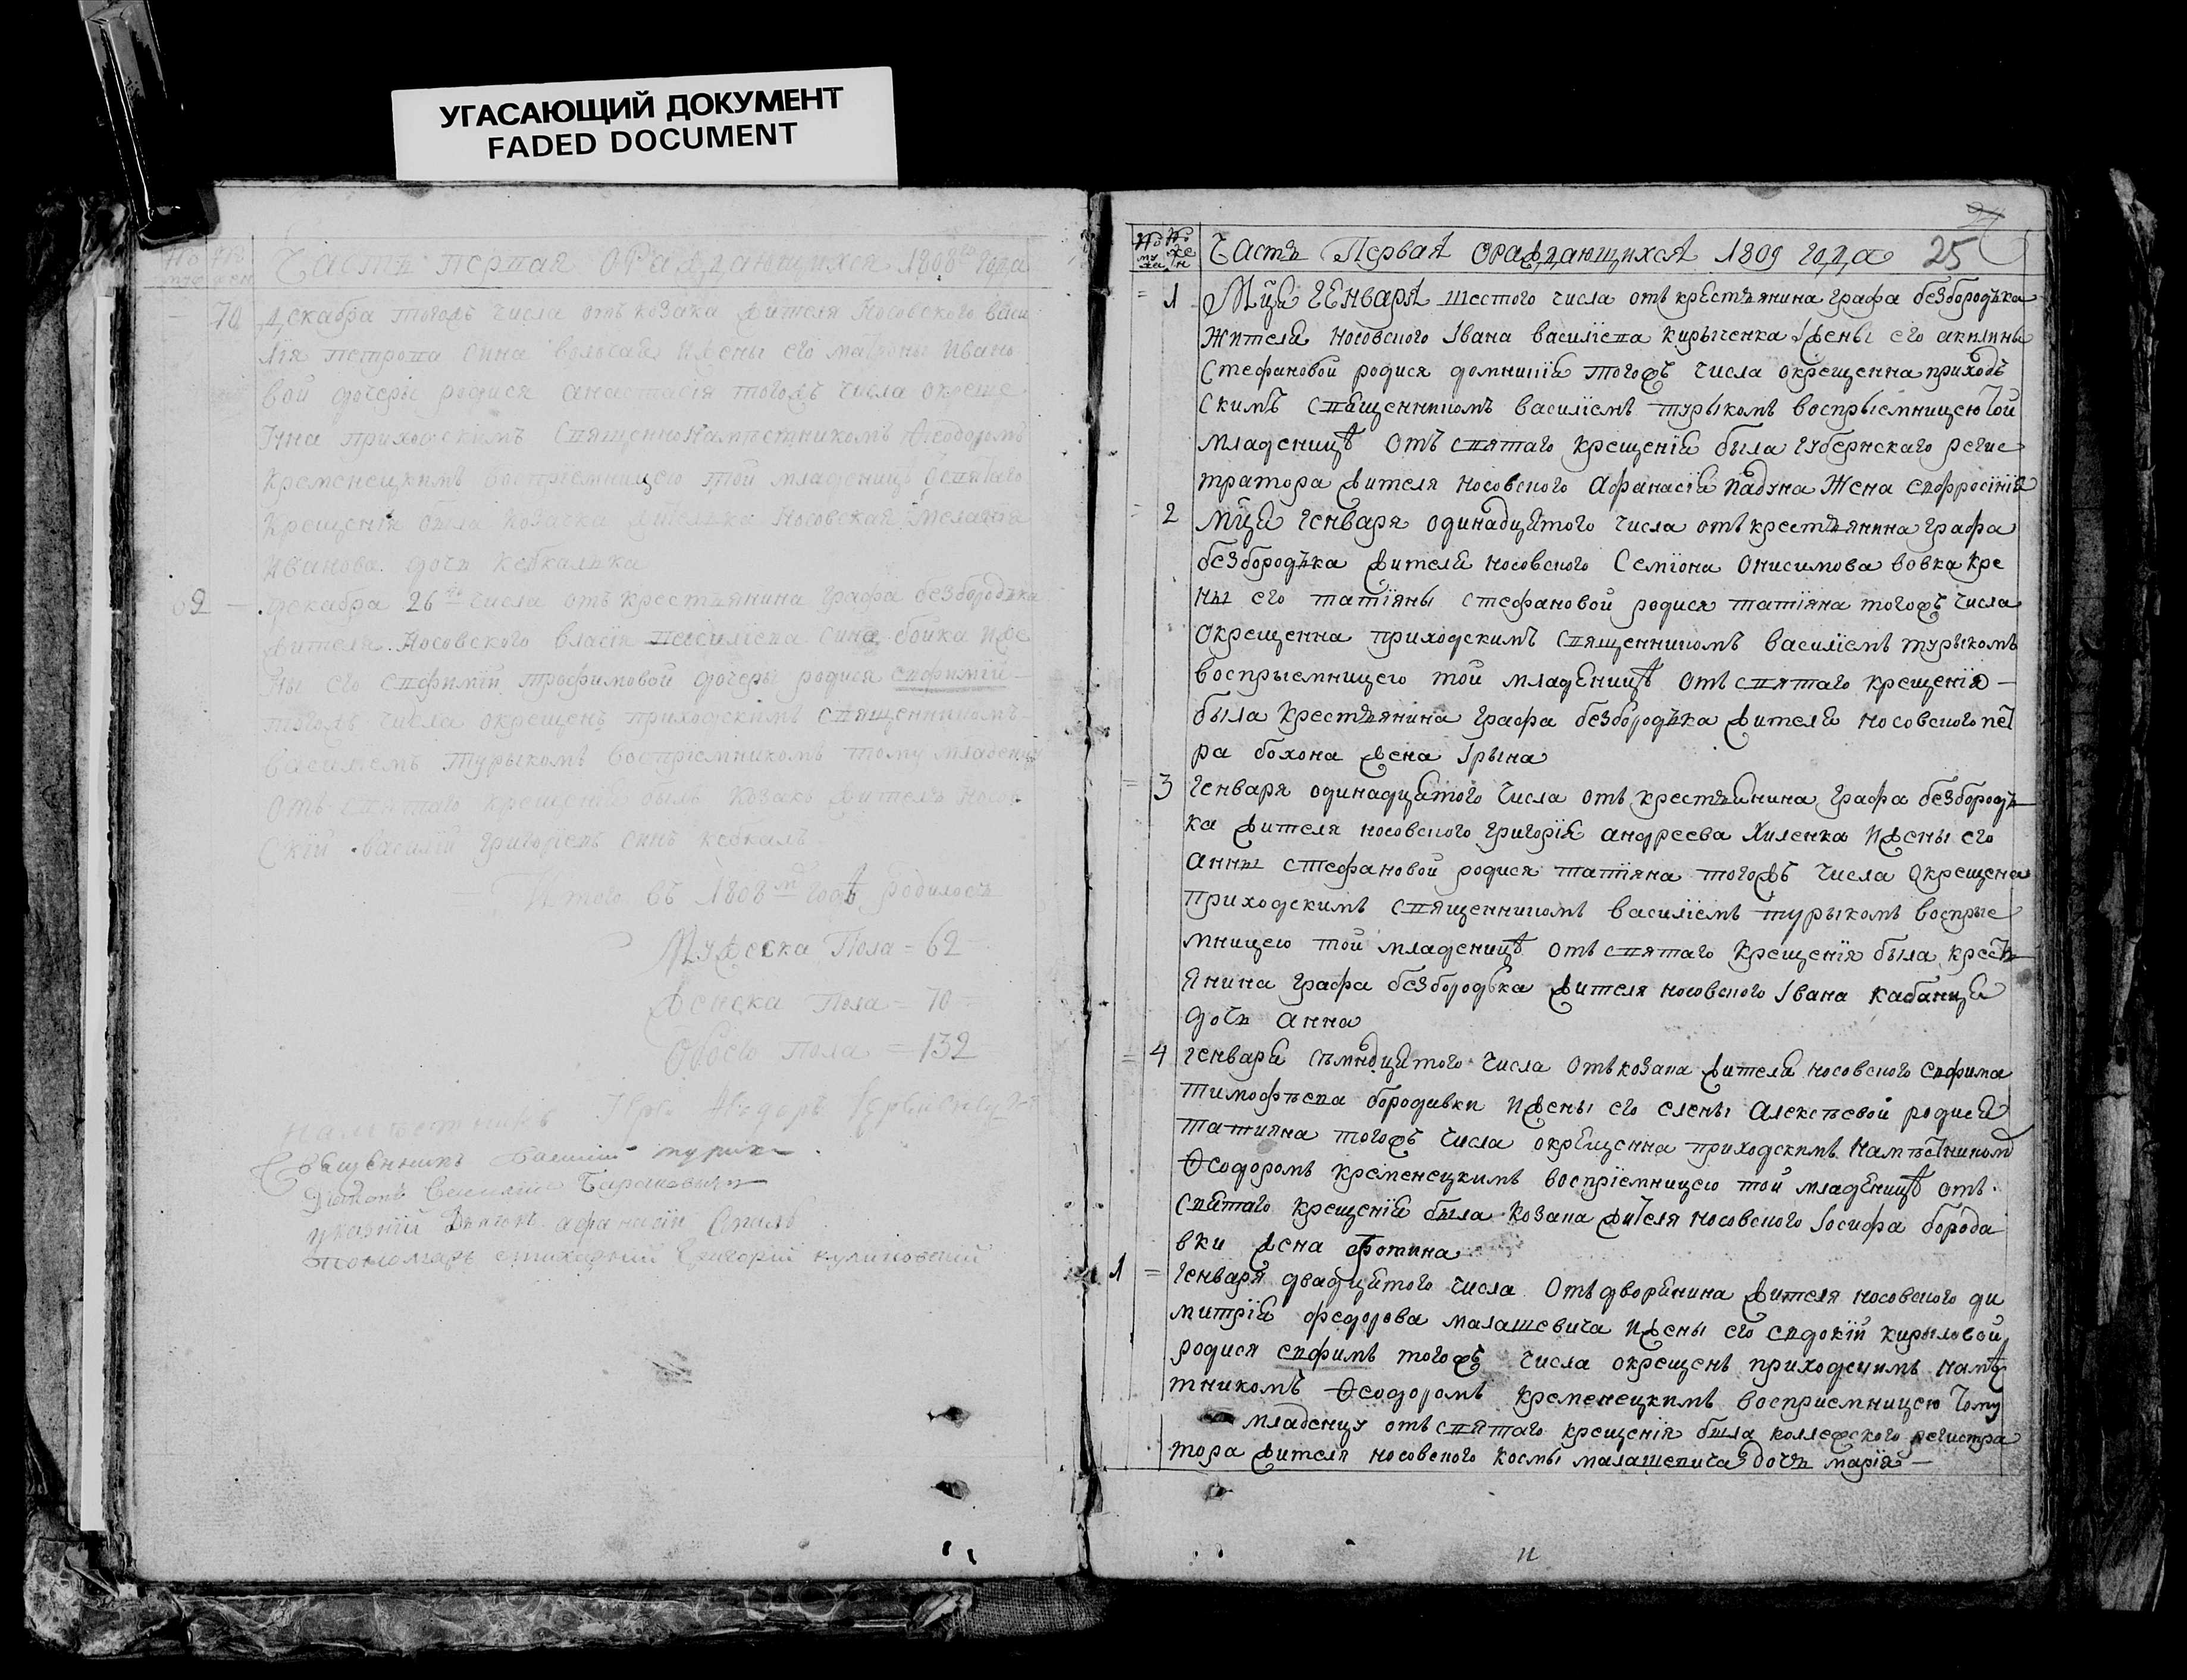 УГАСАЮЩИЙ ДОКУМЕНТ
FADED DOCUMENT
Но муж Но жен
Часть первая ораждающихся 1808го года
70 декабра тогожъ числа отъ козака жителя Носовского васи
лія петрова сина волычая ижены его матроны Ивано
вой дочеры родися анастасія тогожъ числа окреще
нна приходскимъ священнонамѣстникомъ Ѳеодоромъ
Кременецкимъ воспріемницею той младеницѣ
Крещенія была козачка жителька Носовская Меланія
Иванова дочъ кебкалъка
62 декабра 26го числа отъ крестъянина графа безбородъка
жителя Носовского власія василіева сина бойка иже
ны его евфиміи трофимовой дочеры родися евфимій
тогожъ числа окрещенъ приходскимъ священникомъ
василіемъ турыкомъ воспріемникомъ тому младенцу
отъ святаго крещенія былъ козакъ жителъ Носов
скій василій григоріевъ синъ кебкалъ
Итого въ 1808мъ годѣ родилосъ
Мужеска Пола = 62
Женска пола = 70
Обоего пола = 132
намѣстникъ
Священникъ Василій турик
Діаконъ Василій Барановичъ
указній Дьячокъ афанасій
пономаръ стихарній Григорій кулиновскій
24
Но мужа Но жен
Частъ Первая ораждающихся 1809 года 25
= 1 Мца Генваря шестого числа отъ крестъянина графа безбородъка
жителя носовского Івана василіева кирыченка іжены его акилины
Стефановой родися домникія тогожъ числа окрещенна приход
скимъ священникомъ василіемъ турыкомъ воспрыемницею той
младеницѣ отъ святаго крещенія была губернскаго регис
тратора жителя носовского Афанасія падуна жена евфросінія
= 2 Мца генваря одинадцятого числа отъ крестъянина графа
безбородъка жителя носовского Семіона Онисимова вовка Іже
ны его татіяны стефановой родися татіяна тогожъ числа
окрещенна приходскимъ священникомъ василіемъ турыкомъ
воспрыемницею той младеницѣ отъ святаго крещенія —
была крестъянина графа безбородъка жителя носовского пет
ра бохона жена Ірына
= 3 генваря одинадцятого числа отъ крестъянина графа безбородъ
ка жителя носовского григорія андреева Хиленка ижены его
анны стефановой родися татіяна тогожъ числа окрещена
приходскимъ священникомъ василіемъ турыкомъ воспрые
мницею той младеницѣ отъ святаго крещенія была кресть
янина графа безбородька жителя носовского Івана кабанця
дочъ анна
= 4 генваря съмнадцятого числа отъ козака жителя носовского евфима
тимофѣева бородавки ижены его елены алексѣевой родися
татияна тогожъ числа окрещенна приходскимъ намѣстником
Ѳеодоромъ кременецкимъ воспріемницею той младеницѣ отъ
святаго крещенія была козака жителя носовского Іосифа борода
вки жена фотина
1 = генваря двадцятого числа отъ дворянина жителя носовского ди
митрія федорова малашевича ижены его евдокіи кирыловой
родися евфимъ тогожъ числа окрещенъ приходскимъ намѣ
тникомъ Ѳеодоромъ кременецкимъ восприемницею тому
младенцу отъ святаго крещенія была коллежского регистра
тора жителя носовского космы малашевича дочъ марія —